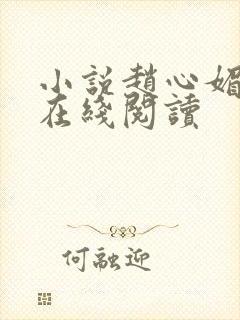 小说趙心媚
在綫閱讀
何融迎